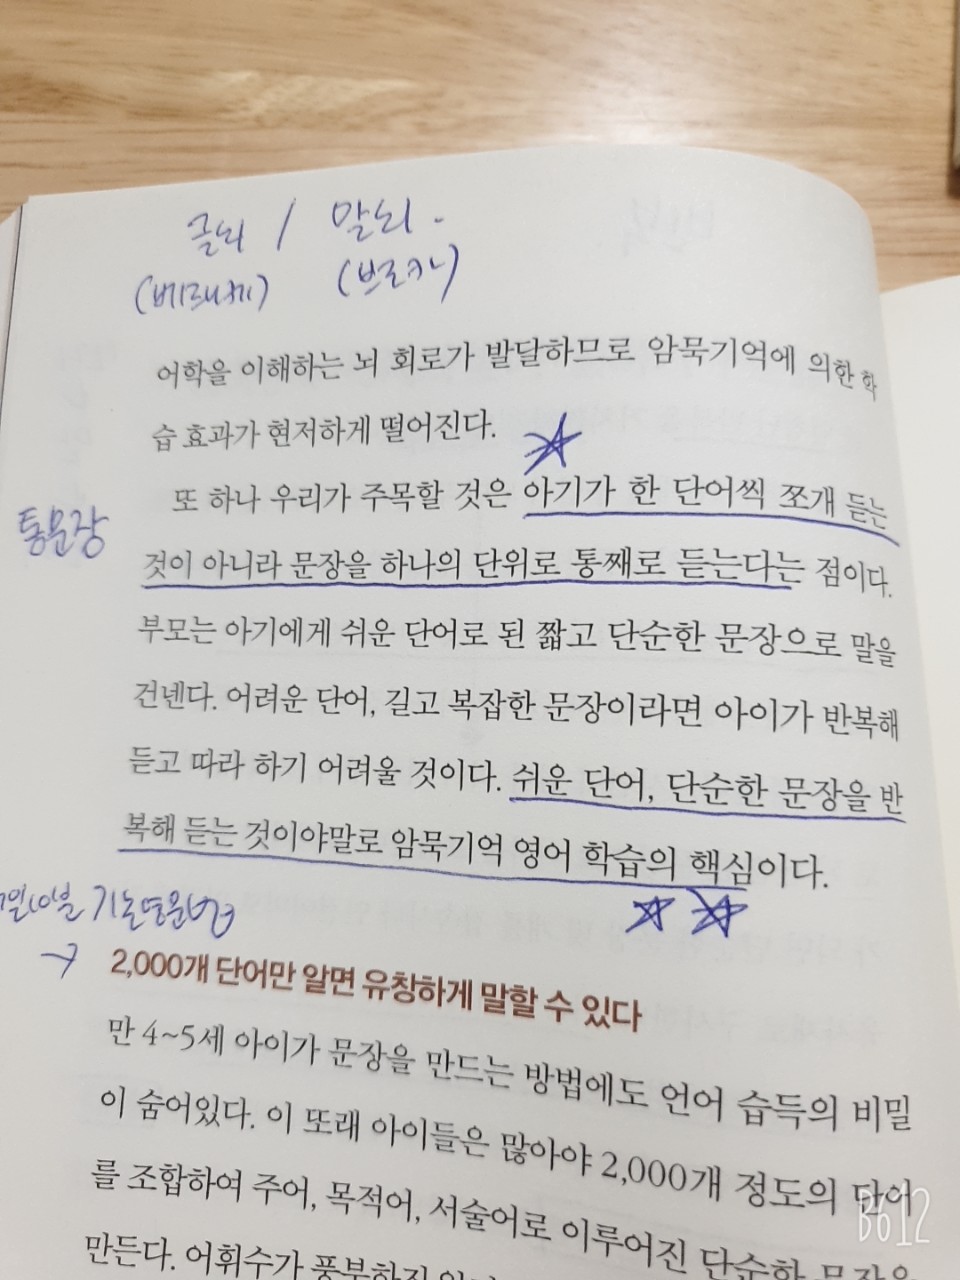 글뇌 / 말뇌.
(베르니케) (브로카)
어학을 이해하는 뇌 회로가 발달하므로 암묵기억에 의한 학
습 효과가 현저하게 떨어진다.
또 하나 우리가 주목할 것은 아기가 한 단어씩 쪼개 듣는
통문장
것이 아니라 문장을 하나의 단위로 통째로 듣는다는 점이다.
부모는 아기에게 쉬운 단어로 된 짧고 단순한 문장으로 말을
건넨다. 어려운 단어, 길고 복잡한 문장이라면 아이가 반복해
듣고 따라 하기 어려울 것이다. 쉬운 단어, 단순한 문장을 반
복해 듣는 것이야말로 암묵기억 영어 학습의 핵심이다.
→ 2,000개 단어만 알면 유창하게 말할 수 있다
만 4~5세 아이가 문장을 만드는 방법에도 언어 습득의 비밀
이 숨어있다. 이 또래 아이들은 많아야 2,000개 정도의 단어
를 조합하여 주어, 목적어, 서술어로 이루어진 단순한 문장을
만든다. 어휘수가 풍부하진
B612